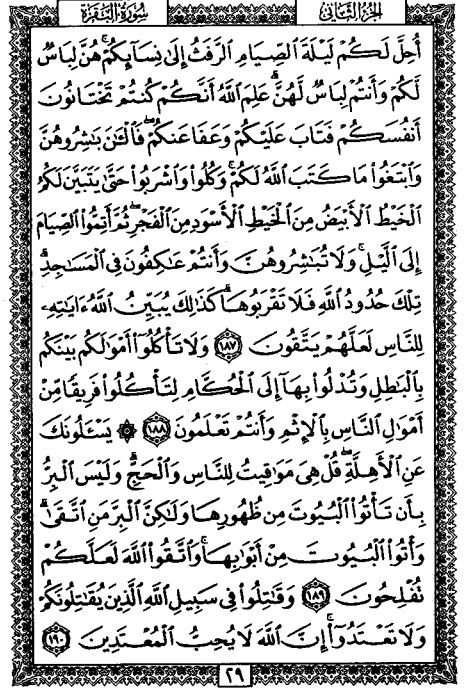 سُورَةُ البَقَرَةِ
الجُزْءُ الثَّانِي
أُحِلَّ لَكُمْ لَيْلَةَ ٱلصِّيَامِ ٱلرَّفَثُ إِلَىٰ نِسَآئِكُمْ ۚ هُنَّ لِبَاسٌ
لَّكُمْ وَأَنتُمْ لِبَاسٌ لَّهُنَّ ۗ عَلِمَ ٱللَّهُ أَنَّكُمْ كُنتُمْ تَخْتَانُونَ
أَنفُسَكُمْ فَتَابَ عَلَيْكُمْ وَعَفَا عَنكُمْ ۖ فَٱلْـَٰٔنَ بَٰشِرُوهُنَّ
وَٱبْتَغُوا۟ مَا كَتَبَ ٱللَّهُ لَكُمْ ۚ وَكُلُوا۟ وَٱشْرَبُوا۟ حَتَّىٰ يَتَبَيَّنَ لَكُمُ
ٱلْخَيْطُ ٱلْأَبْيَضُ مِنَ ٱلْخَيْطِ ٱلْأَسْوَدِ مِنَ ٱلْفَجْرِ ۖ ثُمَّ أَتِمُّوا۟ ٱلصِّيَامَ
إِلَى ٱلَّيْلِ ۚ وَلَا تُبَٰشِرُوهُنَّ وَأَنتُمْ عَٰكِفُونَ فِى ٱلْمَسَٰجِدِ ۗ
تِلْكَ حُدُودُ ٱللَّهِ فَلَا تَقْرَبُوهَا ۗ كَذَٰلِكَ يُبَيِّنُ ٱللَّهُ ءَايَٰتِهِۦ
لِلنَّاسِ لَعَلَّهُمْ يَتَّقُونَ ١٨٧ وَلَا تَأْكُلُوٓا۟ أَمْوَٰلَكُم بَيْنَكُم
بِٱلْبَٰطِلِ وَتُدْلُوا۟ بِهَآ إِلَى ٱلْحُكَّامِ لِتَأْكُلُوا۟ فَرِيقًا مِّنْ
أَمْوَٰلِ ٱلنَّاسِ بِٱلْإِثْمِ وَأَنتُمْ تَعْلَمُونَ ١٨٨ ۞ يَسْـَٔلُونَكَ
عَنِ ٱلْأَهِلَّةِ ۖ قُلْ هِىَ مَوَٰقِيتُ لِلنَّاسِ وَٱلْحَجِّ ۗ وَلَيْسَ ٱلْبِرُّ
بِأَن تَأْتُوا۟ ٱلْبُيُوتَ مِن ظُهُورِهَا وَلَٰكِنَّ ٱلْبِرَّ مَنِ ٱتَّقَىٰ ۗ
وَأْتُوا۟ ٱلْبُيُوتَ مِنْ أَبْوَٰبِهَا ۚ وَٱتَّقُوا۟ ٱللَّهَ لَعَلَّكُمْ
تُفْلِحُونَ ١٨٩ وَقَٰتِلُوا۟ فِى سَبِيلِ ٱللَّهِ ٱلَّذِينَ يُقَٰتِلُونَكُمْ
وَلَا تَعْتَدُوٓا۟ ۚ إِنَّ ٱللَّهَ لَا يُحِبُّ ٱلْمُعْتَدِينَ ١٩٠
٢٩